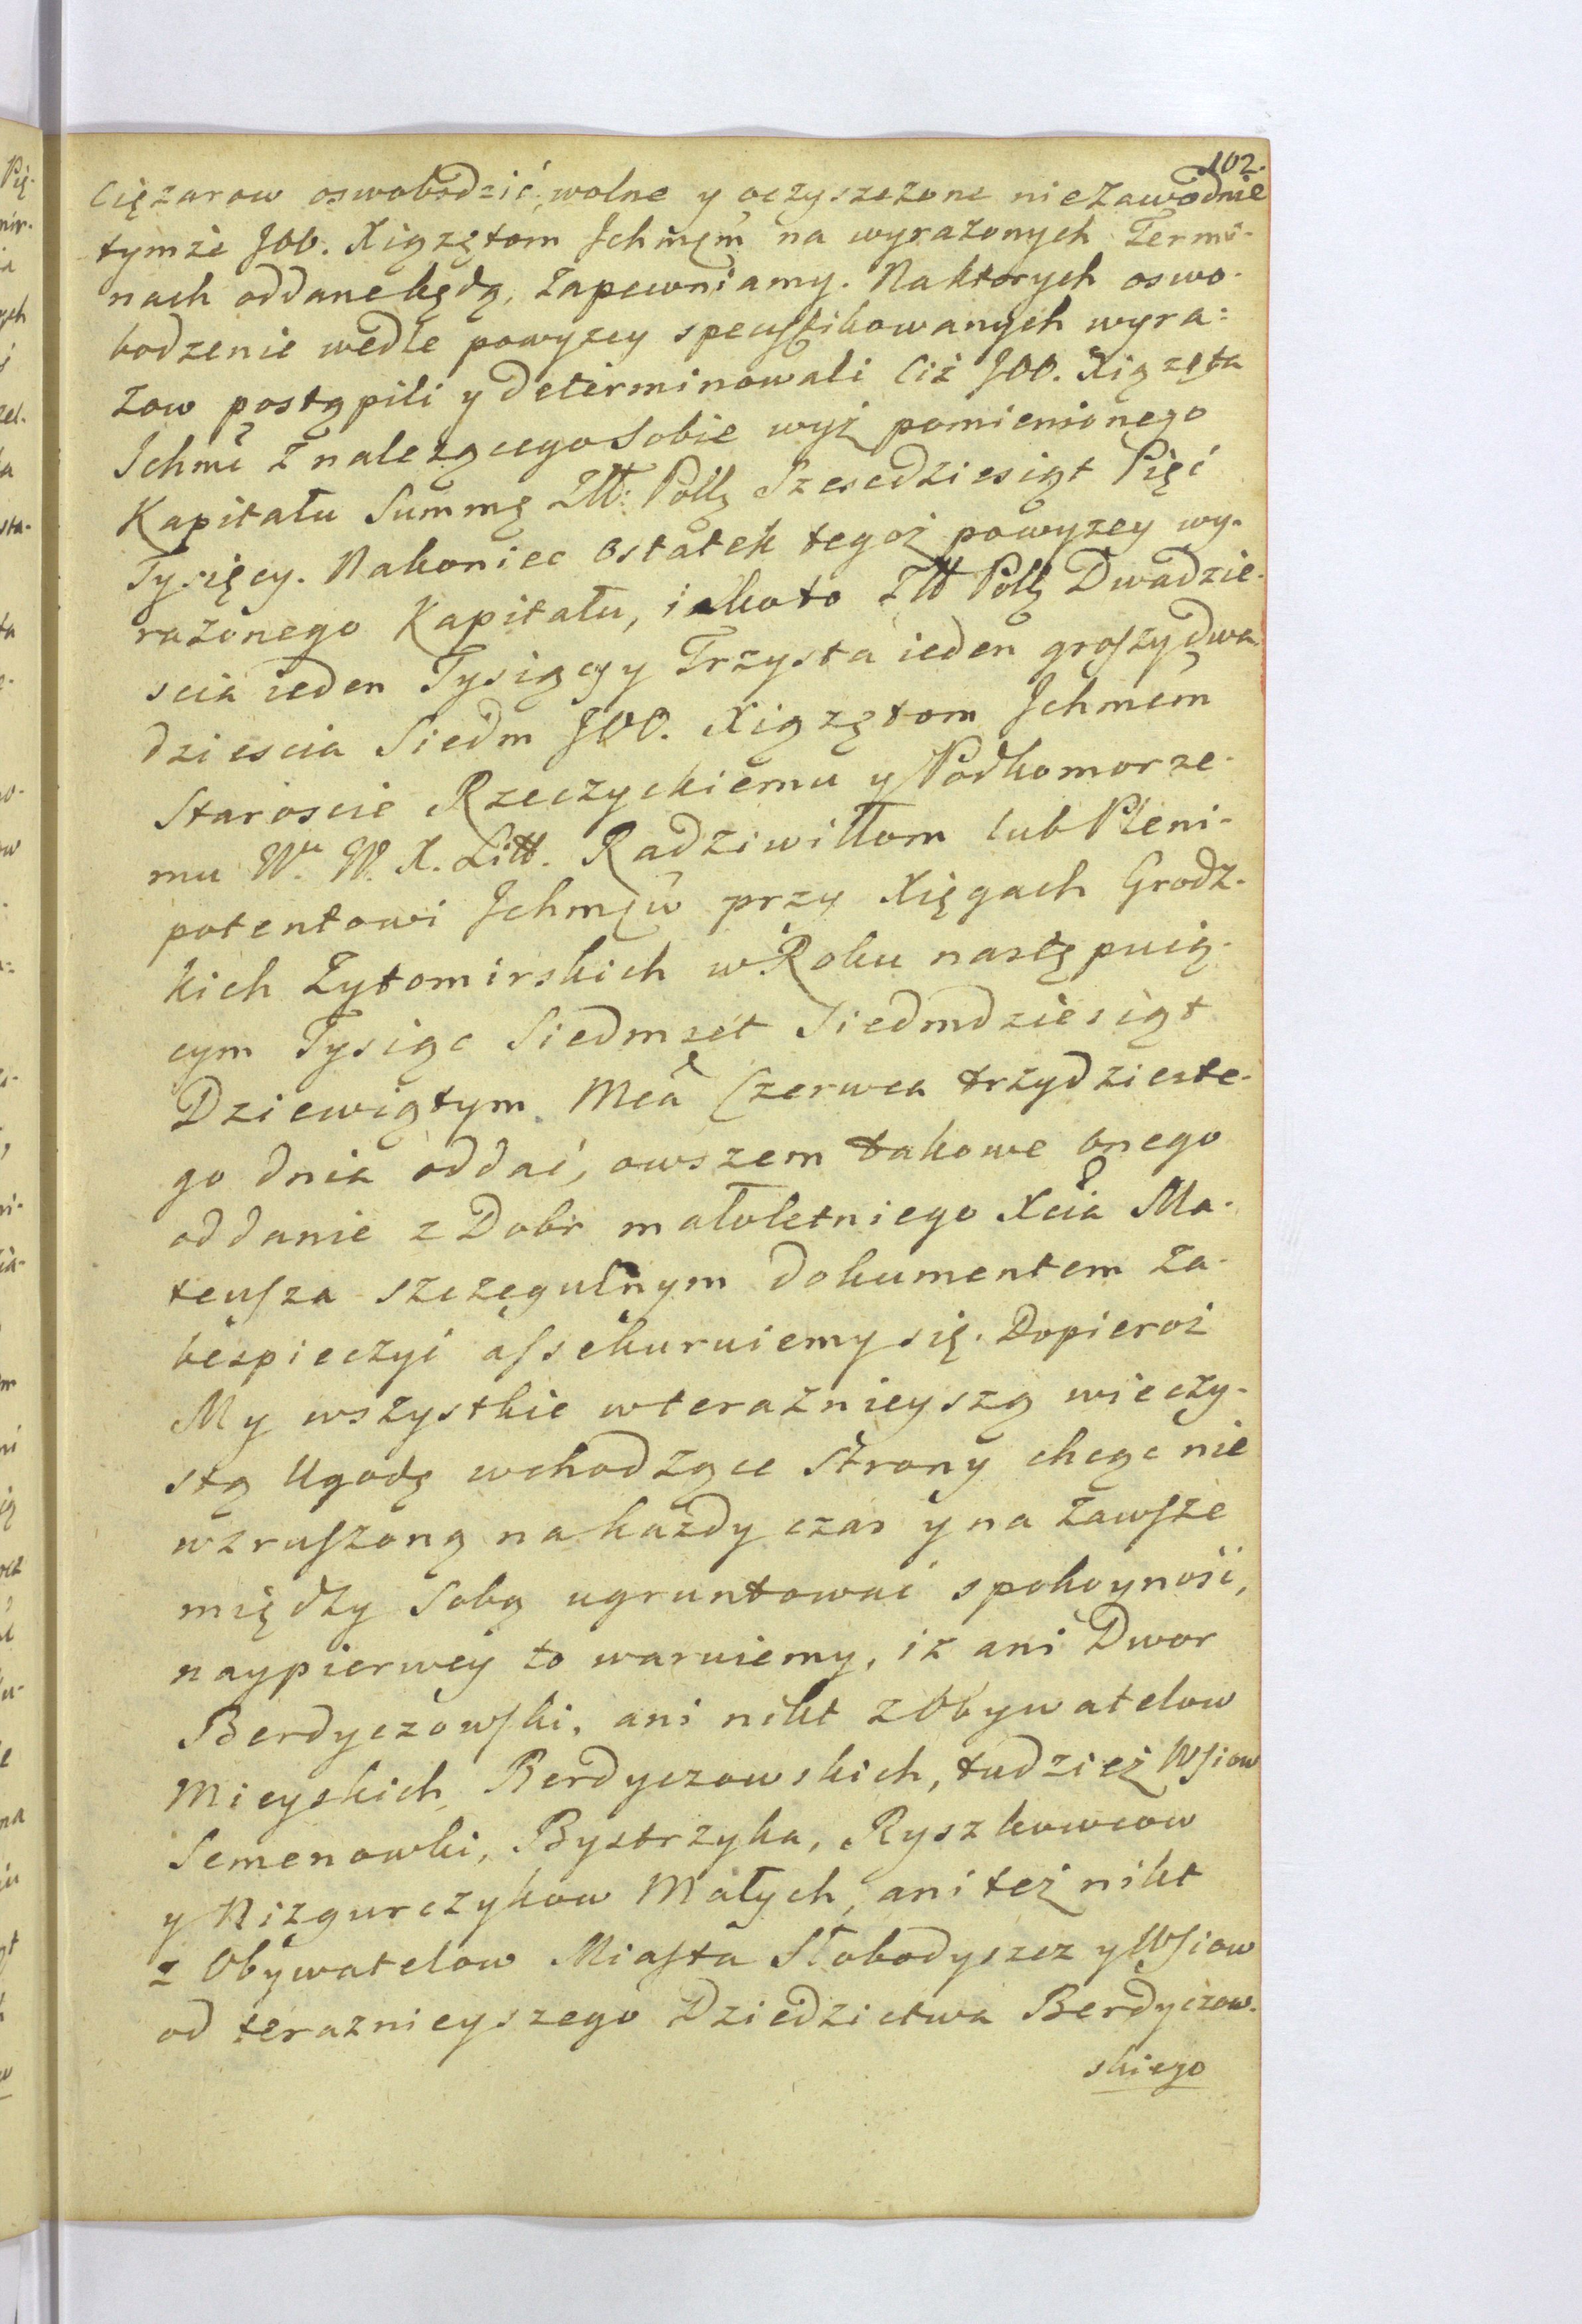 102.
Cięzarow oswobodzić, wolne y oczyszczone niezawodnie
tymże JOO. Xiązętom Ichmćm na wyrazonych Termi-
nach oddane będą, zapewniamy. Na ktorych oswo-
bodzenie wedle powyzey specyfikowanych wyra-
zow postąpili y determinowali Ciż JOO. Xiązęta
Ichmć z nalezącego Sobie wyż pomienionego
Kapitału Summę Złł: Pollͅ Szescdziesiąt Pięć
Tysięcy. Nakoniec ostatek tegoż powyzey wy-
razonego Kapitału, iako to Złł Pollͅ Dwadzie-
scia ieden Tysięcy Trzysta ieden groszy dwa-
dziescia Siedm JOO. Xiązętom Ichmćm
Staroscie Rzeczyckiemu y Podkomorze-
mu Wu. W. X. Litt. Radziwiłłom lub Pleni-
potentowi Ichmćw przy Xięgach Grodz-
kich Zytomirskich w Roku następuią-
cym Tysiąc Siedmset Siedmdziesiąt
Dziewiątym Mca Czerwca trzydzieste-
go dnia oddać, owszem takowe onego
oddanie z Dobr małoletniego Xcia Ma-
teusza szczegulnym dokumentem za-
bespieczyć assekuruiemy się. Dopieroż
My wszystkie w teraznieyszą wieczy-
stą Ugodę wchodzące Strony chcąc nie
wzruszoną na każdy czas y na zawsze
między Sobą ugruntować spokoyność,
naypierwey to waruiemy, iz ani Dwor
Berdyczowski, ani nikt z Obywatelow
Mieyskich Berdyczowskich, tudzież Wsiow
Semenowki, Bystrzyka, Ryszkowcow
y Nizgurczykow Małych, ani też nikt
z Obywatelow Miasta Słobodyszcz y Wsiow
od teraznieyszego Dziedzictwa Berdyczow-
skiego